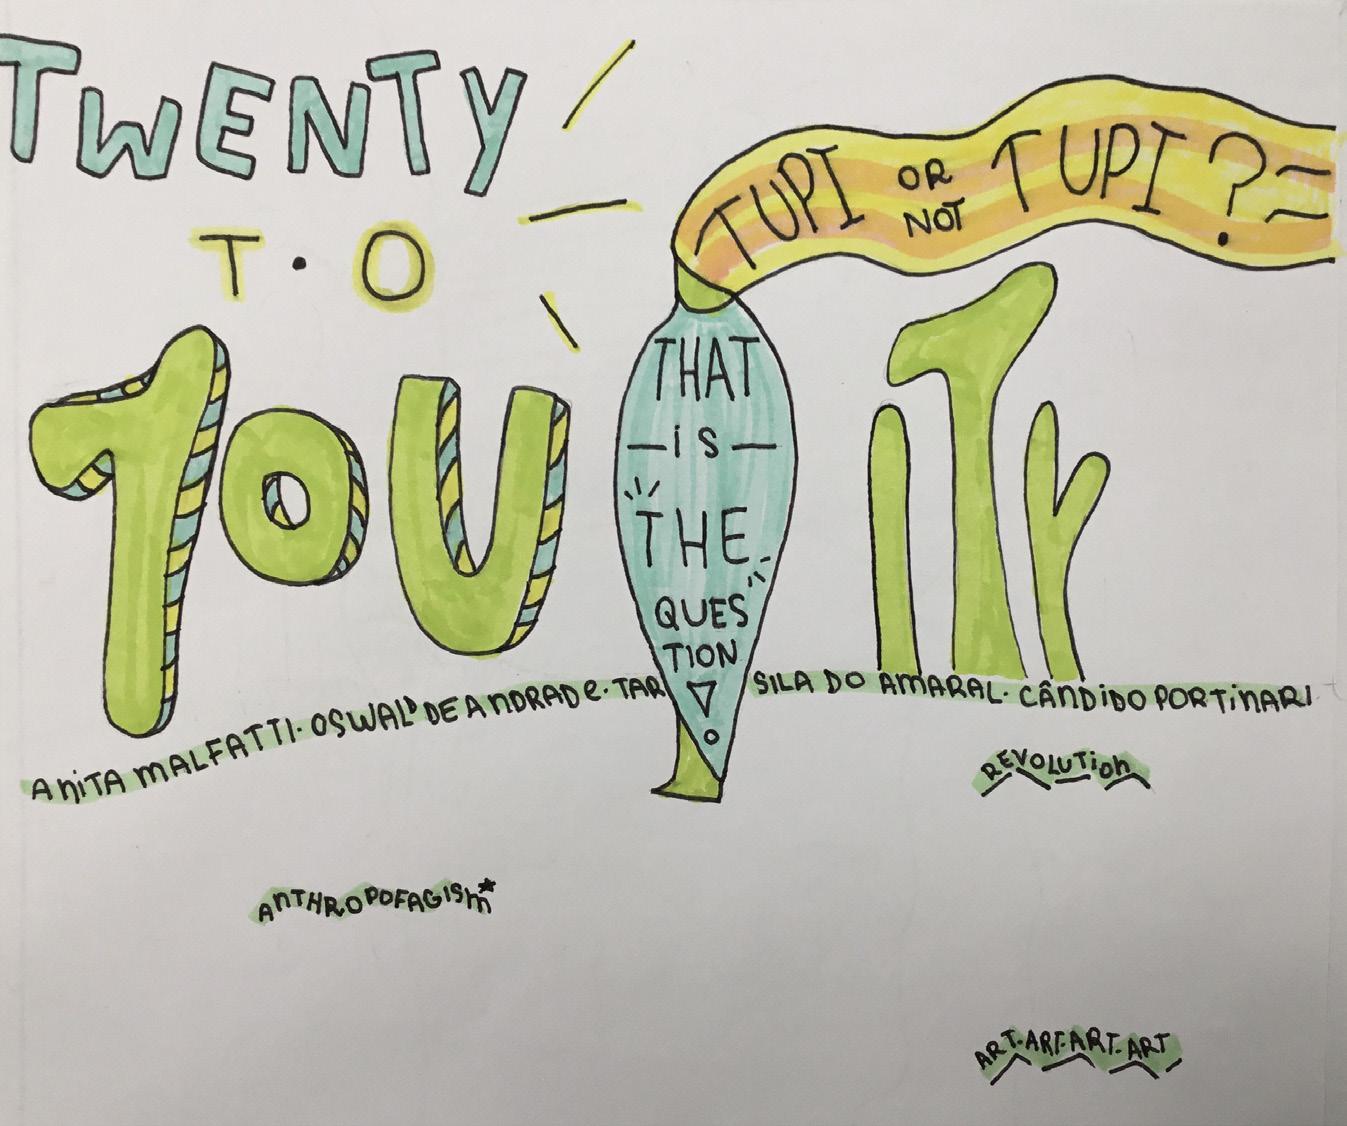 TWENTY
T.O
YOU
TUPI OR NOT TUPI?
THAT
- is -
THE
QUES
TION
ANiTA MALFATTi. OSWALD DE ANDRADe. TARSILA DO AMARAL. CÂNDIDO PORTiNARi
REVOLUTiOn
AnTHROPOFAGISm*
ART.ART.ART.ART